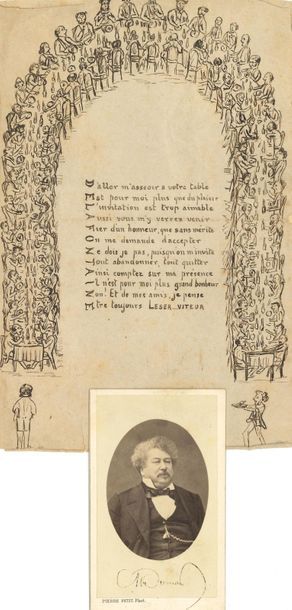 D'aller m'asseoir à votre table
Est pour moi plus que du plaisir
L'invitation est trop aimable
Aussi vous m'y verrez venir
Fier d'un honneur, que sans mérite
On me demande d'accepter
Ne dois je pas, puisqu'on m'invite
Tout abandonner, tout quitter
Ainsi comptez sur ma présence
Il n'est pour moi plus grand bonheur
Non! Et de mes amis, je pense
Etre toujours LESER...VITEUR
PIERRE PETIT Phot.